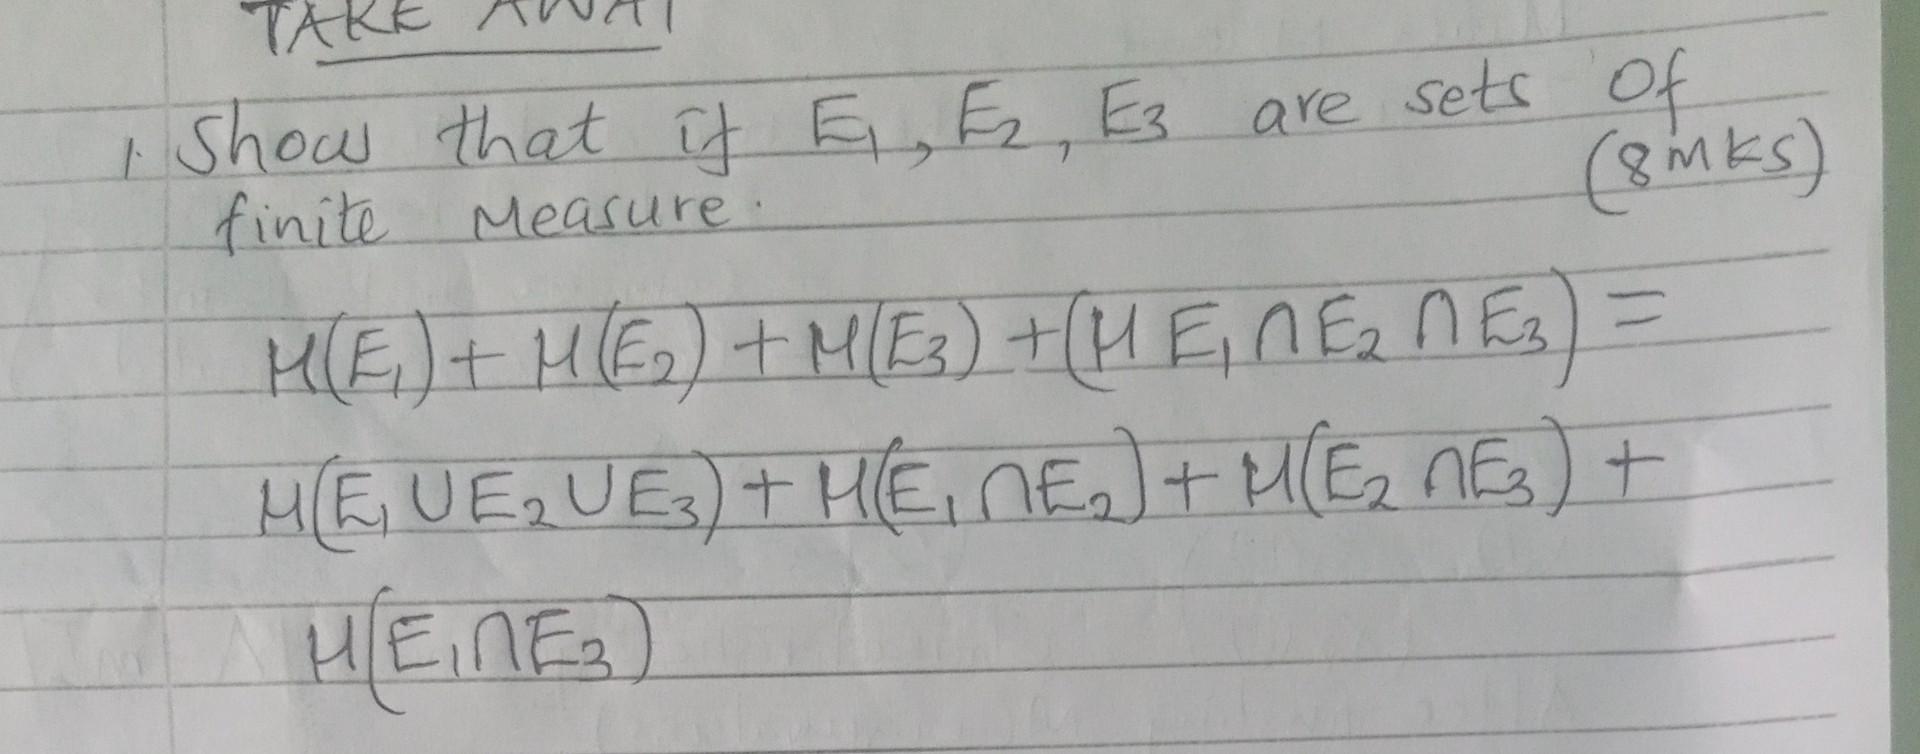 TAKE AWAY
1. Show that if E₁, E₂, E₃ are sets of
(8mks)
finite Measure.
μ(E₁) + μ(E₂) + μ(E₃) + (μ E₁ ∩ E₂ ∩ E₃) =
μ(E₁ ∪ E₂ ∪ E₃) + μ(E₁ ∩ E₂) + μ(E₂ ∩ E₃) +
μ(E₁ ∩ E₃)